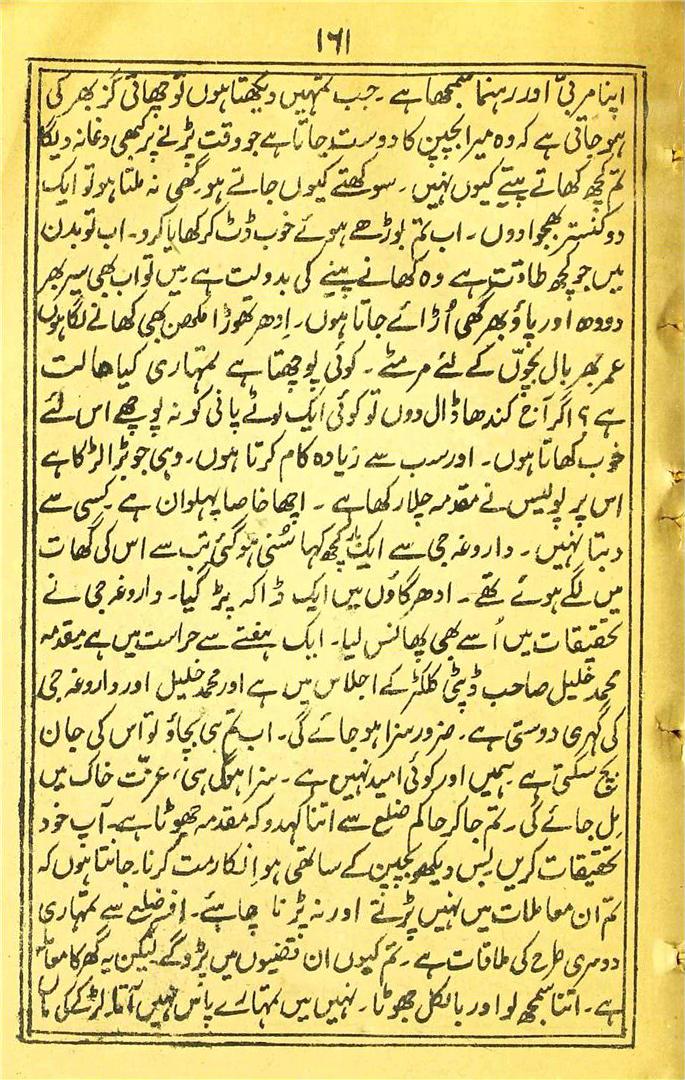 ۱۶۱
اپنا مربیّ اور رہنما سمجھا ہے ۔ جب تمہیں دیکھتا ہوں تو چھاتی گز بھر کی
ہو جاتی ہے کہ وہ میرا بچپن کا دوست جاتا ہے جو وقت پڑنے پر کبھی دغا نہ دیگا
تم کچھ کھاتے پیتے کیوں نہیں ۔ سوکھتے کیوں جاتے ہو ۔ گھی نہ ملتا ہو تو ایک
دو کنستر بھجوادوں ۔ اب تم بوڑھے ہوئے خوب ڈٹ کر کھایا کرو ۔ اب تو بدن
میں جو کچھ طاقت ہے وہ کھانے پینے کی بدولت ہے ۔ میں تو اب بھی سیر بھر
دودھ اور پاؤ بھر گھی اُڑائے جاتا ہوں ۔ اِدھر تھوڑا مکھن بھی کھانے لگا ہوں
عمر بھر بال بچوّں کے لئے مرمٹے ۔ کوئی پوچھتا ہے تمہاری کیا حالت
ہے ؟ اگر آج کندھا ڈال دوں تو کوئی ایک لوٹے پانی کو نہ پوچھے اس لئے
خوب کھاتا ہوں ۔ اور سب سے زیادہ کام کرتا ہوں ۔ وہی جو بڑا لڑکا ہے
اس پر پولیس نے مقدمہ چلا رکھا ہے ۔ اچھا خاصا پہلوان ہے ۔ کسی سے
دبتا نہیں ۔ داروغہ جی سے ایک بار کچھ کہا سُنی ہو گئی تب سے اس کی گھات
میں لگے ہوئے تھے ۔ ادھر گاؤں میں ایک ڈاکہ پڑ گیا ۔ داروغہ جی نے
تحقیقات میں اُسے بھی پھانس لیا ۔ ایک ہفتے سے حراست میں ہے مقدمہ
محمد خلیل صاحب ڈپٹی کلکٹر کے اجلاس میں ہے اور محمد خلیل اور داروغہ جی
کی گہری دوستی ہے ۔ ضرور سزا ہو جائے گی ۔ اب تم ہی بچاؤ تو اس کی جان
بچ سکتی ہے ہمیں اور کوئی امید نہیں ہے ۔ سزا ہوگی ہی، عزّت خاک میں
مِل جائے گی ۔ تم جا کر حاکم ضلع سے اتنا کہدو کہ مقدمہ جھوٹا ہے ۔ آپ خود
تحقیقات کریں بس دیکھو بچپن کے ساتھی ہو اِنکار مت کرنا ۔ جانتا ہوں کہ
تم ان معاملات میں نہیں پڑتے اور نہ پڑنا چاہئے ۔ افسر ضلع سے تمہاری
دوسری طرح کی ملاقات ہے ۔ تم کیوں ان قضیوں میں پڑوگے لیکن یہ گھر کا معاملہ
ہے ۔ اتنا سمجھ لو اور بالکل جھوٹا ۔ نہیں میں تمہارے پاس نہیں آتا ۔ لڑکے کی ماں